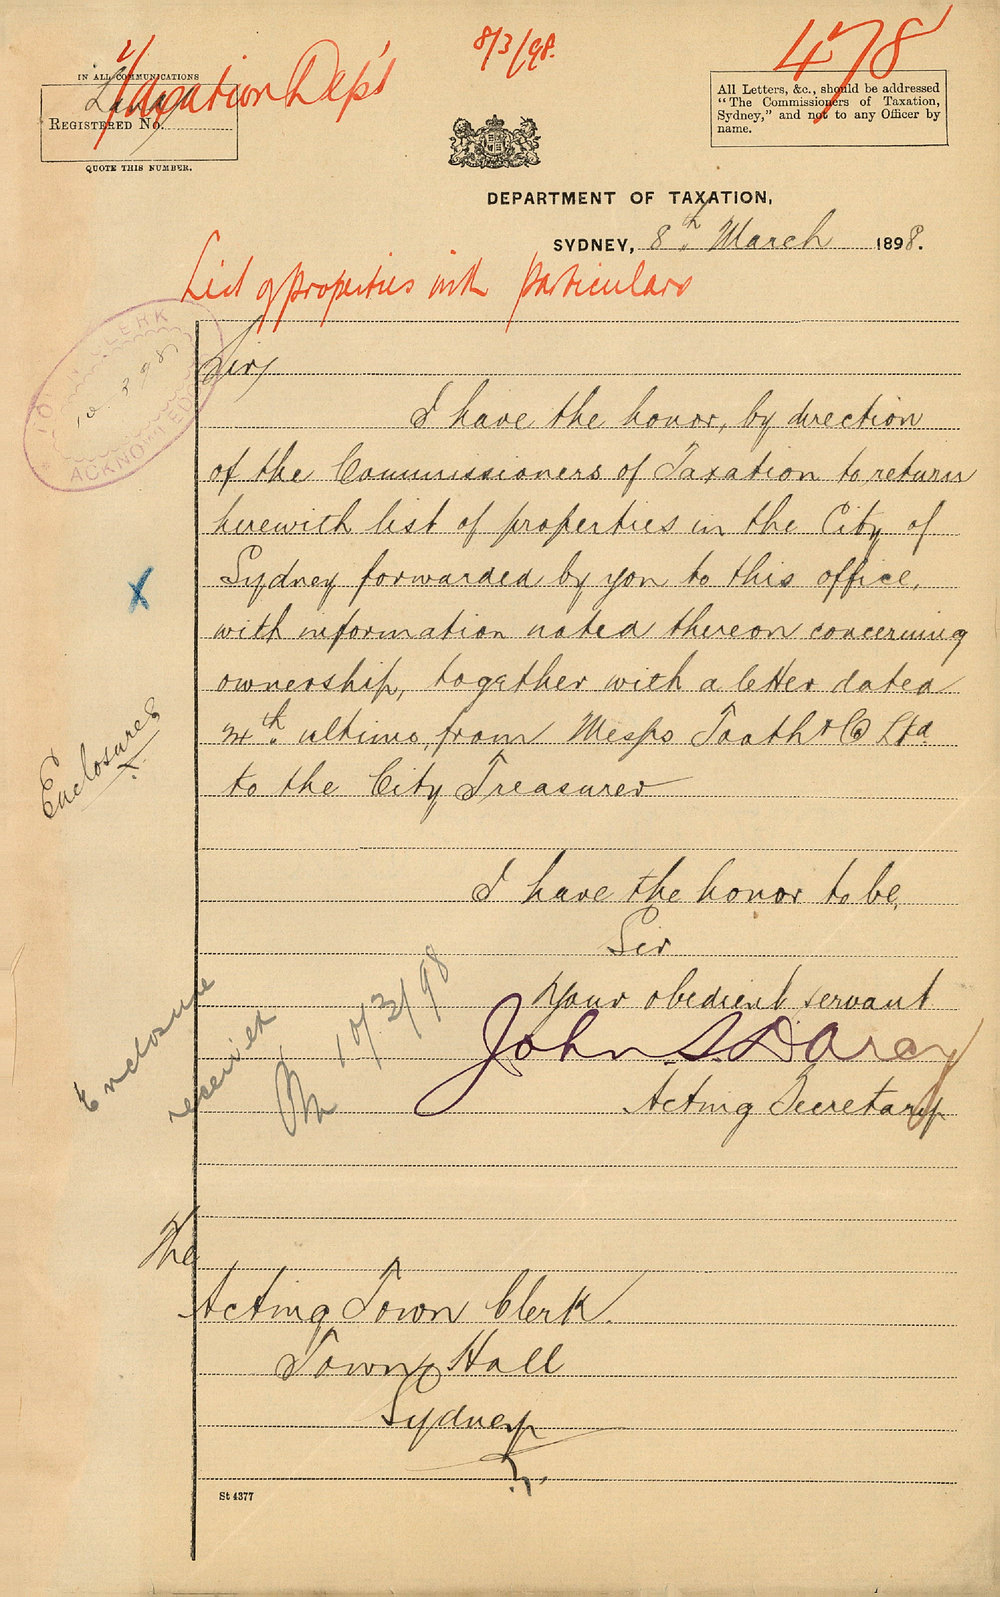 Taxation Dep't
8/3/98.
478
IN ALL COMMUNICATIONS
REGISTERED NO.
QUOTE THIS NUMBER.
All Letters, &c., should be addressed
"The Commissioners of Taxation,
Sydney," and not to any Officer by
name.
DEPARTMENT OF TAXATION,
SYDNEY, 8th. March 1898.
List of properties with particulars
TOWN CLERK
10 3 98
ACKNOWLEDGED
Sir,
I have the honor, by direction
of the Commissioners of Taxation to return
herewith list of properties in the City of
Sydney forwarded by you to this office,
with information noted thereon concerning
ownership, together with a letter dated
th. ultimo, from Messrs Tooth & Co Ltd.
to the City Treasurer
X
Enclosures
I have the honor to be,
Sir
Your obedient servant
John S. D'Arcy
Acting Secretary
Enclosure
received
10/3/98
The
Acting Town Clerk.
Town Hall
Sydney
St 4377